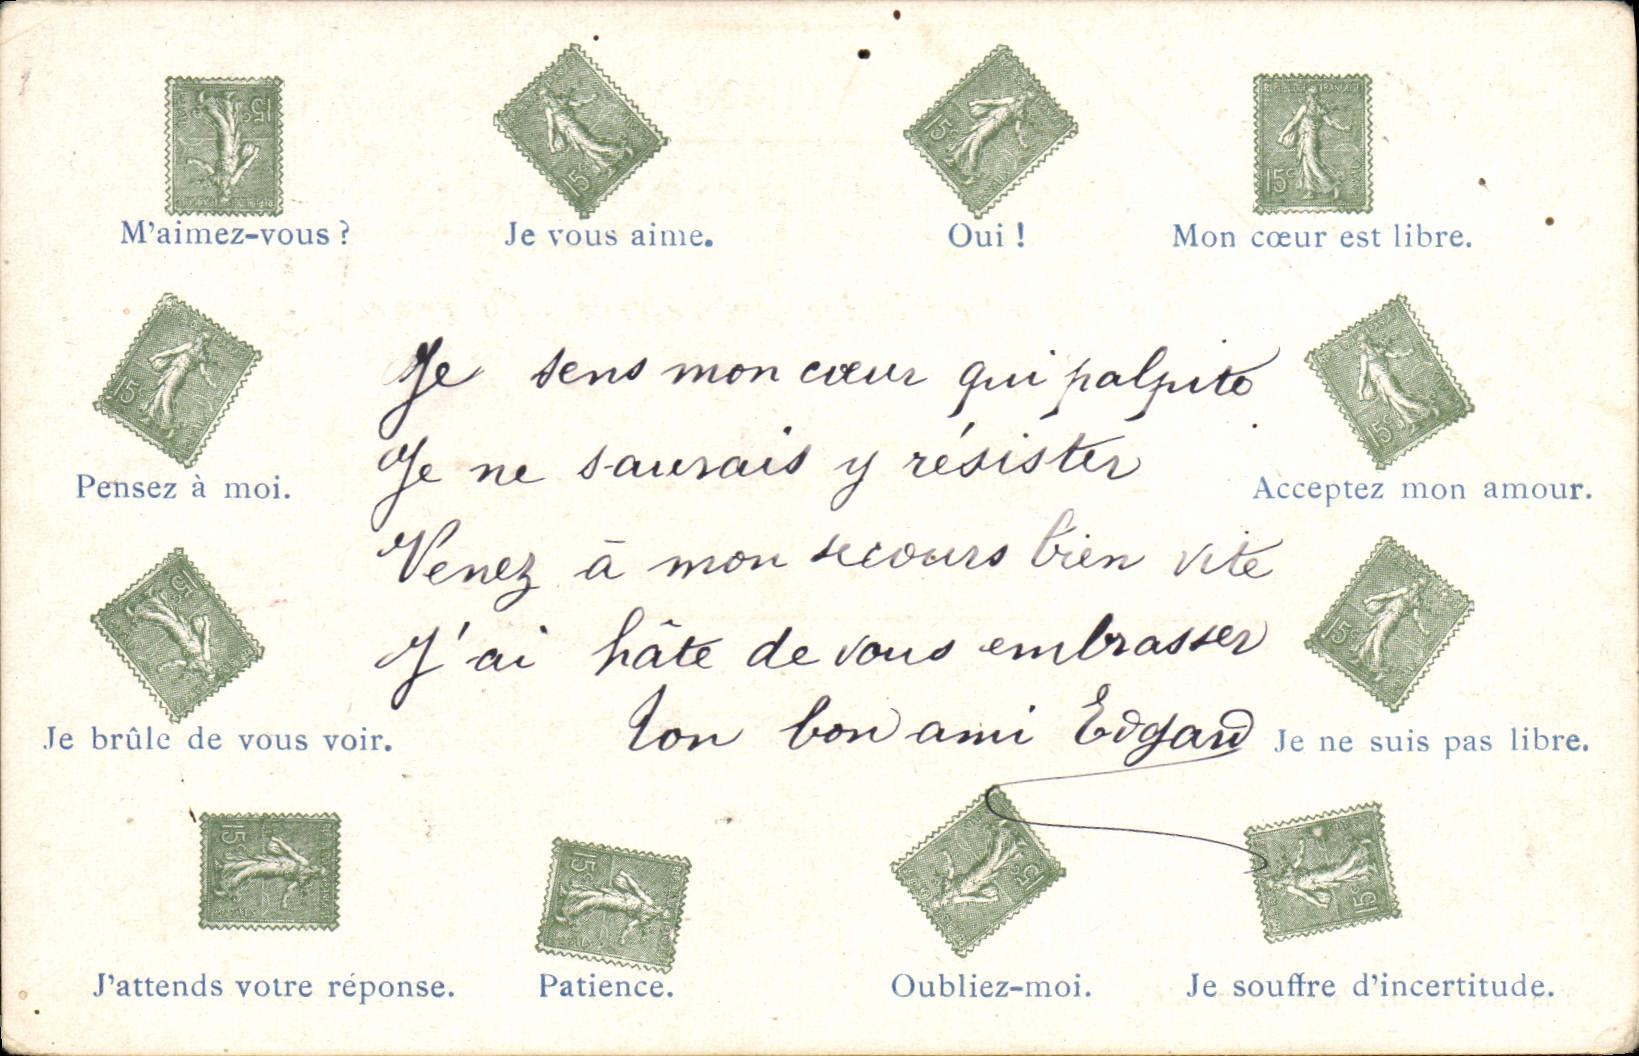 M'aimez-vous ?
Je vous aime.
Oui !
Mon cœur est libre.
Pensez à moi.
Acceptez mon amour.
Je sens mon cœur qui palpite
Je ne saurais y résister
Venez à mon secours bien vite
J'ai hâte de vous embrasser
Ton bon ami Edgard
Je brûle de vous voir.
Je ne suis pas libre.
J'attends votre réponse.
Patience.
Oubliez-moi.
Je souffre d'incertitude.
15c
15c
15c
15c
15c
15c
15c
15c
15c
15c
15c
15c